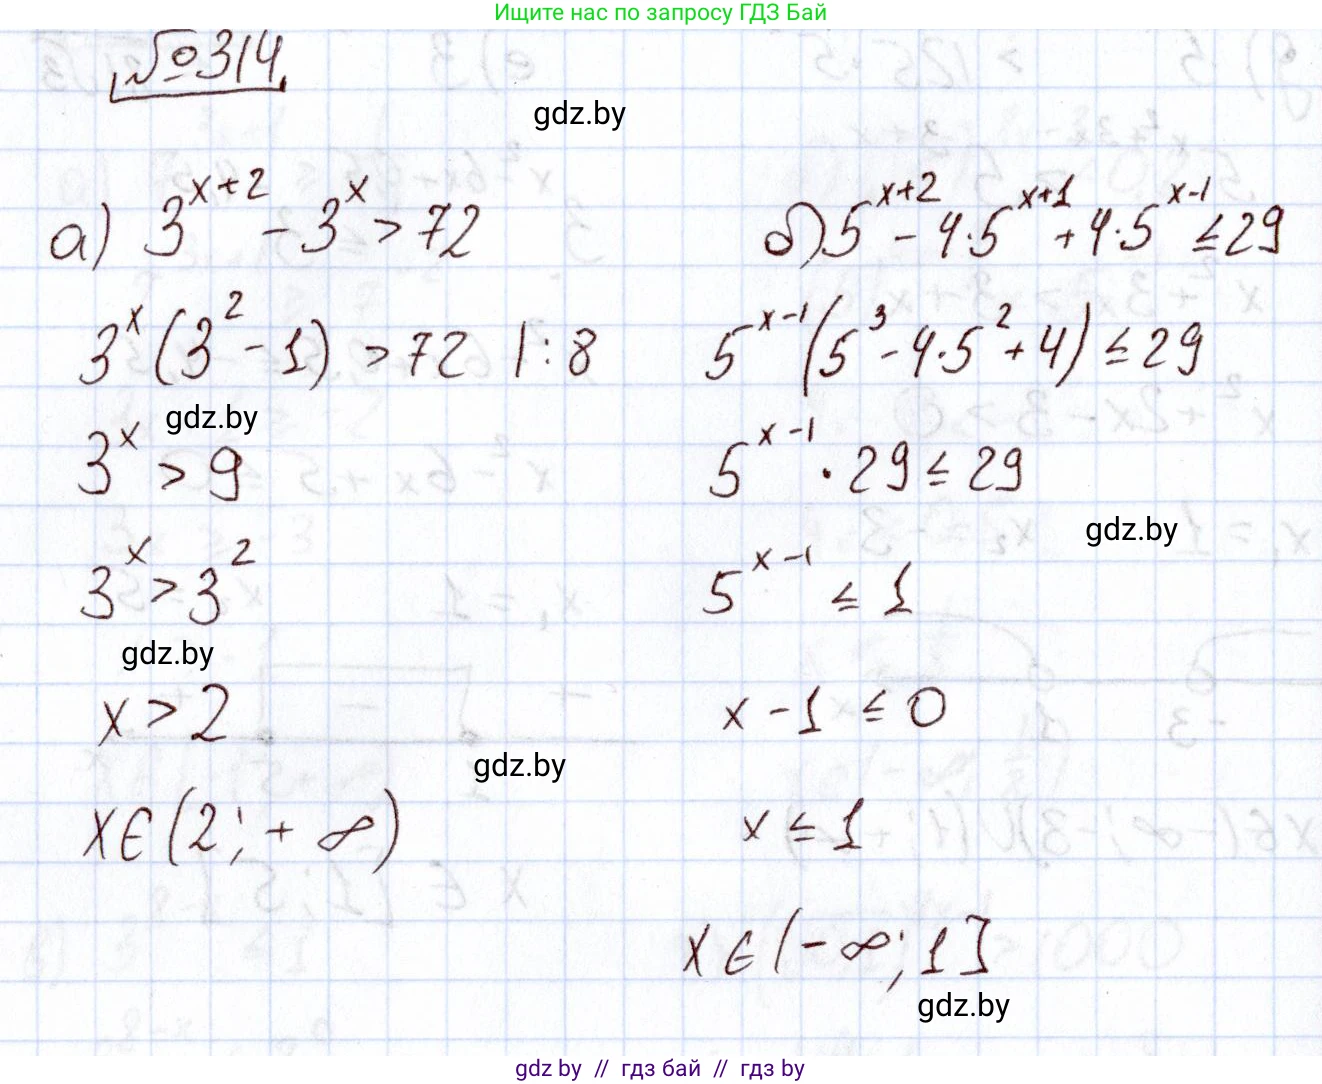 Ищите нас по запросу ГДЗ Бай
№314
gdz.by
а) 3^{x+2} - 3^x > 72
3^x (3^2 - 1) > 72 | : 8
gdz.by
3^x > 9
3^x > 3^2
gdz.by
x > 2
gdz.by
x ∈ (2; + ∞)
б) 5^{x+2} - 4·5^{x+1} + 4·5^{x-1} ≤ 29
5^{x-1} (5^3 - 4·5^2 + 4) ≤ 29
5^{x-1} · 29 ≤ 29
gdz.by
5^{x-1} ≤ 1
x - 1 ≤ 0
x ≤ 1
x ∈ (-∞; 1]
gdz.by
gdz by // гдз бай // gdz by